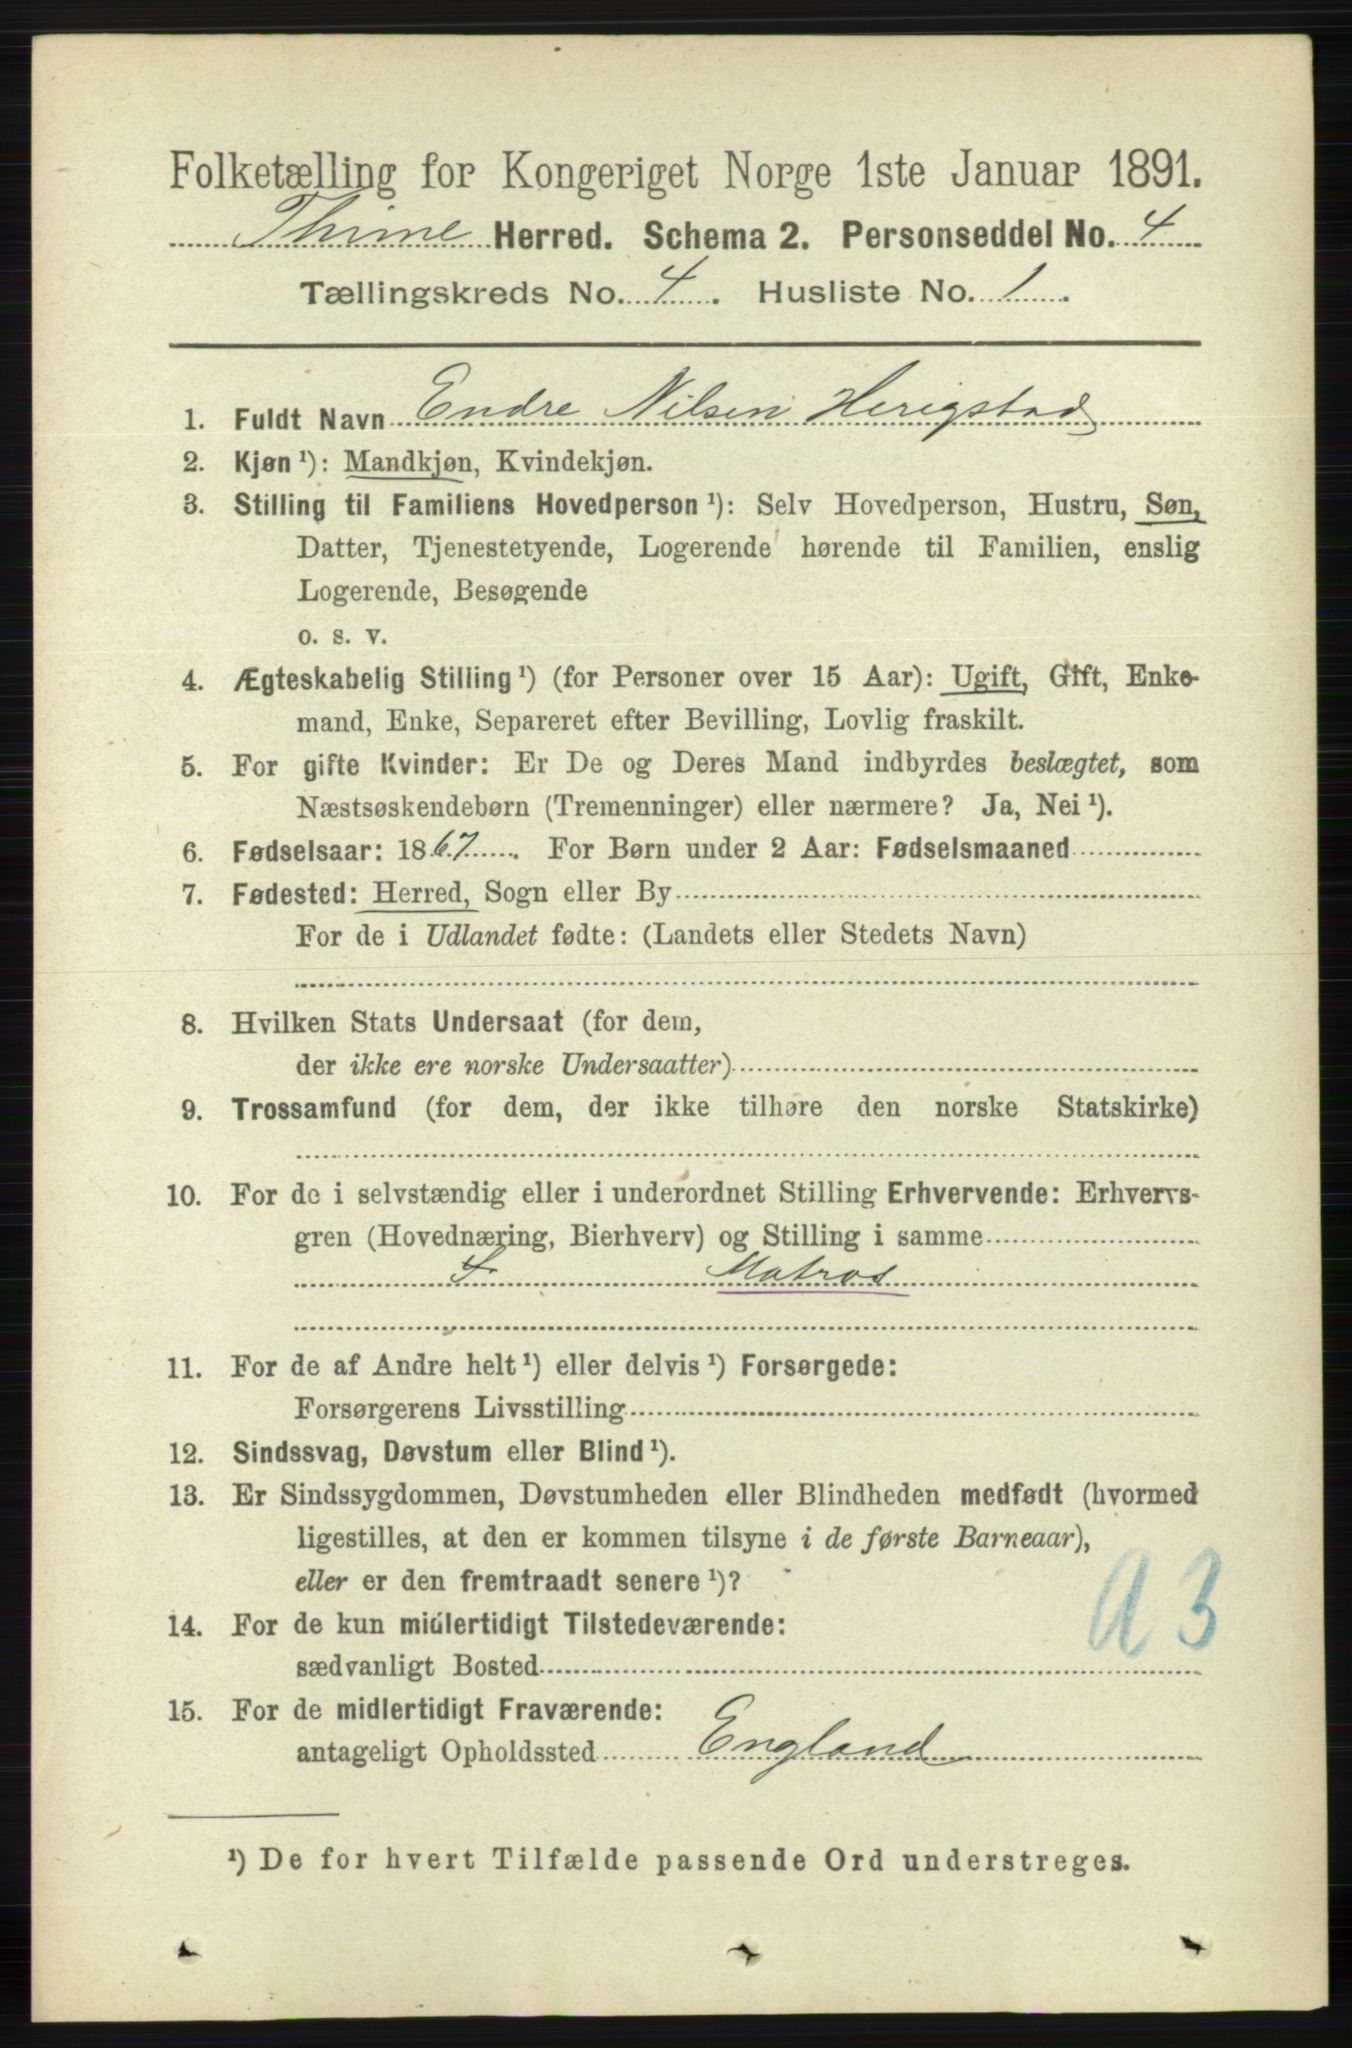 Folketælling for Kongeriget Norge 1ste Januar 1891.
Thime Herred. Schema 2. Personseddel No. 4
Tællingskreds No. 4. Husliste No. 1.
1. Fuldt Navn Endre Nilsen Herigstad
2. Kjøn ¹): Mandkjøn, Kvindekjøn.
3. Stilling til Familiens Hovedperson ¹): Selv Hovedperson, Hustru, Søn,
Datter, Tjenestetyende, Logerende hørende til Familien, enslig
Logerende, Besøgende
o. s. v.
4. Ægteskabelig Stilling ¹) (for Personer over 15 Aar): Ugift, Gift, Enke-
mand, Enke, Separeret efter Bevilling, Lovlig fraskilt.
5. For gifte Kvinder: Er De og Deres Mand indbyrdes beslægtet, som
Næstsøskendebørn (Tremenninger) eller nærmere? Ja, Nei ¹).
6. Fødselsaar: 1867. For Børn under 2 Aar: Fødselsmaaned
7. Fødested: Herred, Sogn eller By
For de i Udlandet fødte: (Landets eller Stedets Navn)
8. Hvilken Stats Undersaat (for dem,
der ikke ere norske Undersaatter)
9. Trossamfund (for dem, der ikke tilhøre den norske Statskirke)
10. For de i selvstændig eller i underordnet Stilling Erhvervende: Erhvervs-
gren (Hovednæring, Bierhverv) og Stilling i samme
F Matros
11. For de af Andre helt ¹) eller delvis ¹) Forsørgede:
Forsørgerens Livsstilling
12. Sindssvag, Døvstum eller Blind ¹).
13. Er Sindssygdommen, Døvstumheden eller Blindheden medfødt (hvormed
ligestilles, at den er kommen tilsyne i de første Barneaar),
eller er den fremtraadt senere ¹)?
a 3
14. For de kun midlertidigt Tilstedeværende:
sædvanligt Bosted
15. For de midlertidigt Fraværende:
antageligt Opholdssted England
¹) De for hvert Tilfælde passende Ord understreges.